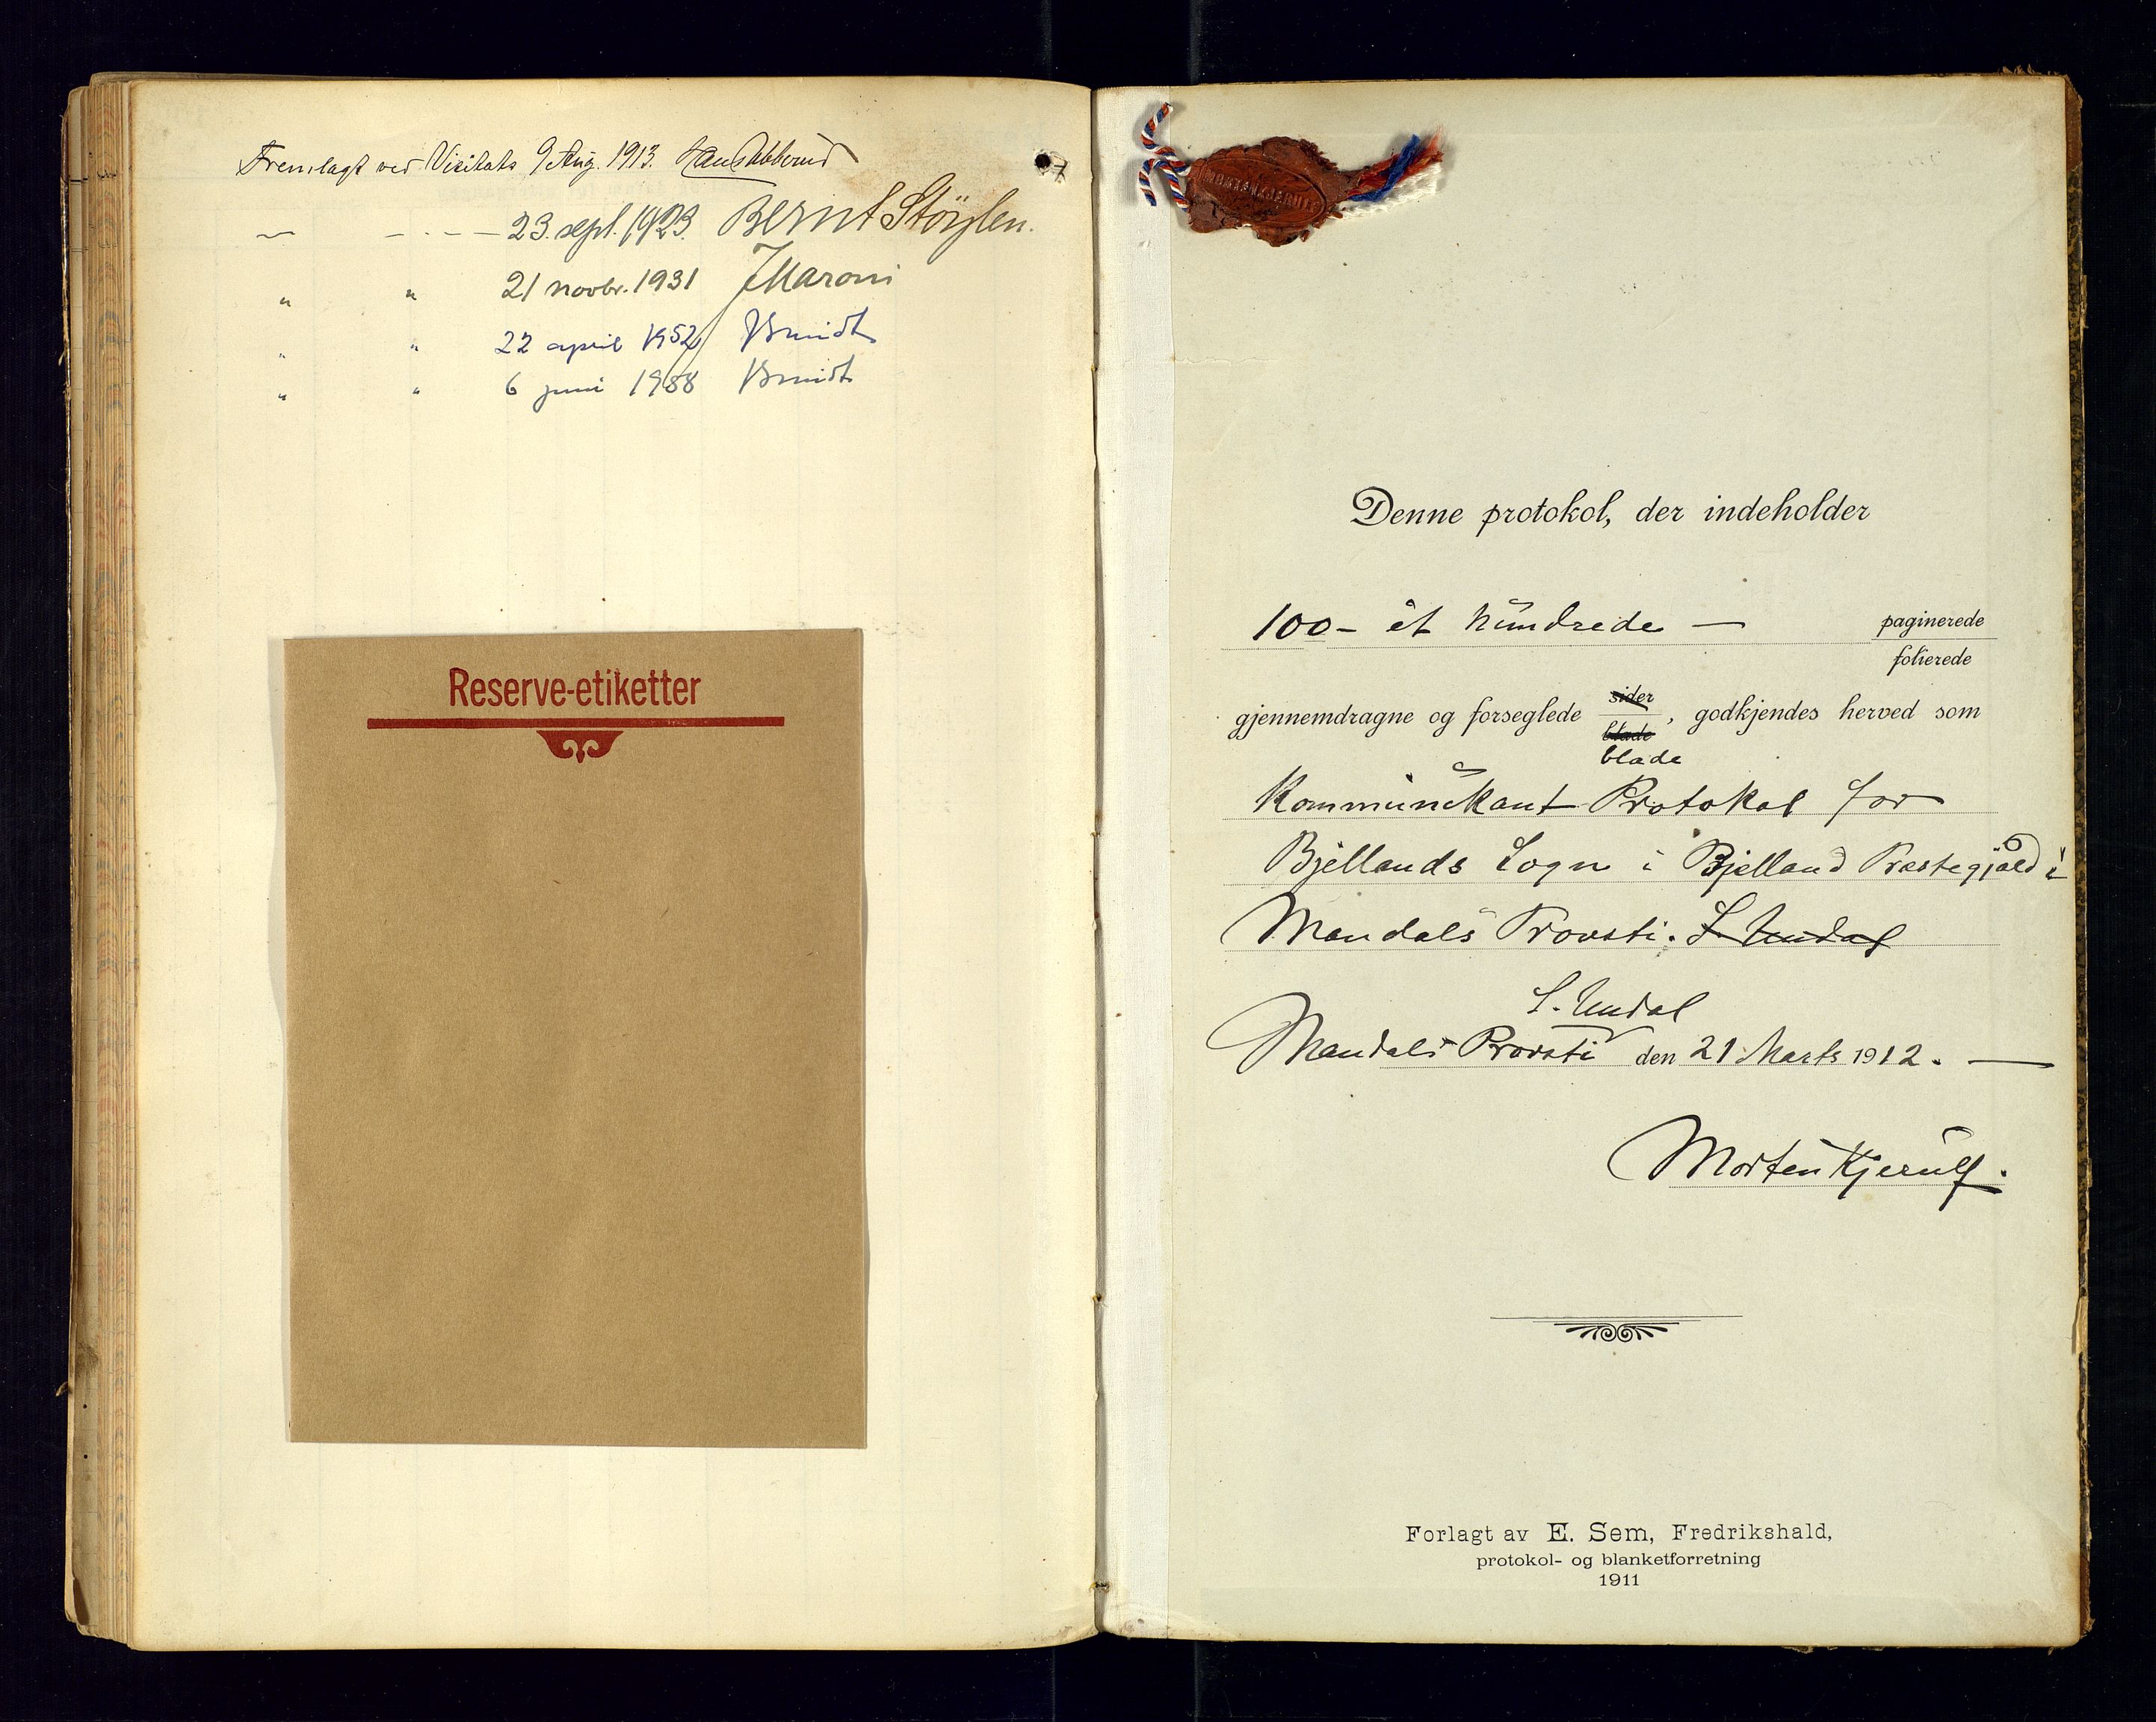 Fremlagt ved Visitats 9 Aug. 1913.
— — · – — 23. sept. 1923. Bernt Støylen.
" " 21 novbr. 1931 J Maroni
" " 22 april 1952 J Smidt
" " 6 juni 1958 J Smidt
Reserve-etiketter
MORTEN KJERULF
Denne protokol, der indeholder
100 – ét hundrede — paginerede
folierede
gjennemdragne og forseglede sider, godkjendes herved som
blade
blade
Kommunikant Protokol for
Bjellands Sogn i Bjelland Præstegjæld i
Mandals Provsti. S. Undal
S. Undal
Mandals Provsti den 21 Marts 1912. —
Morten Kjerulf.
Forlagt av E. Sem, Fredrikshald,
protokol- og blanketforretning
1911